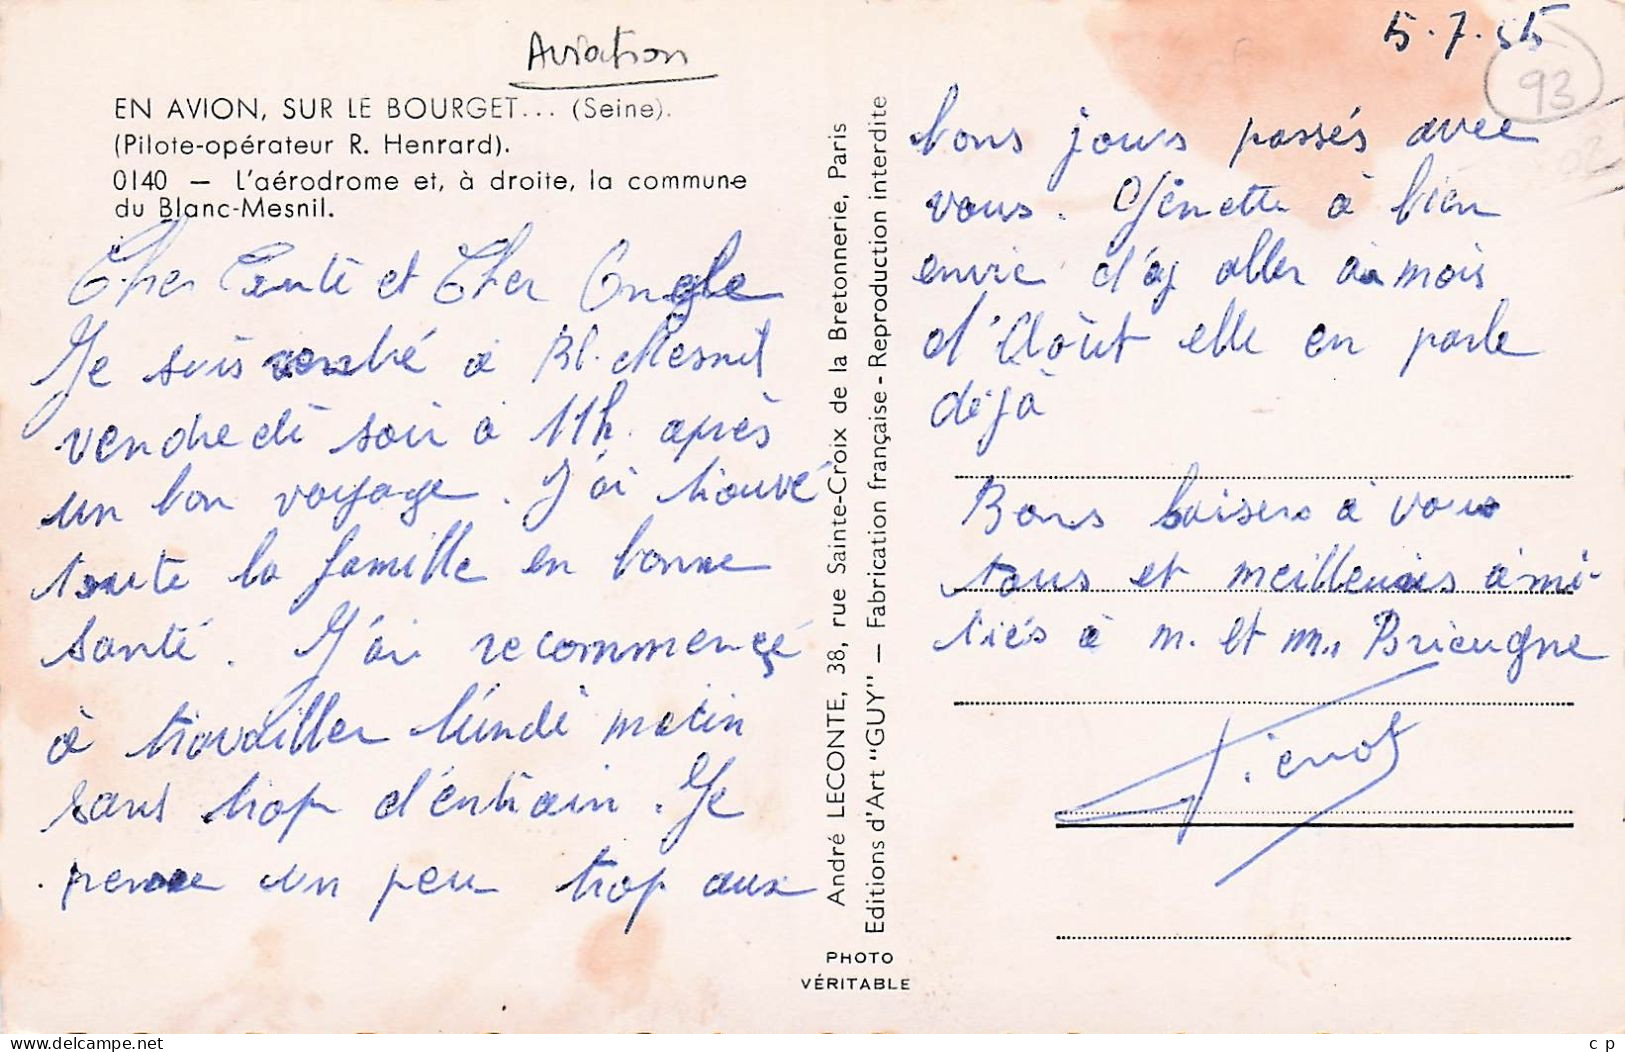 Aviation
EN AVION, SUR LE BOURGET... (Seine).
(Pilote-opérateur R. Henrard).
0140 — L'aérodrome et, à droite, la commune
du Blanc-Mesnil.
Cher Tante et Cher Ongle
Je suis rentré à Bl. Mesnil
vendredi soir à 11h. après
un bon voyage. J'ai trouvé
toute la famille en bonne
santé. J'ai recommençé
à travailler lundi matin
sans trop d'entrain. Je
pense un peu trop aux
André LECONTE, 38, rue Sainte-Croix de la Bretonnerie, Paris
Editions d'Art "GUY" — Fabrication française - Reproduction interdite
PHOTO
VÉRITABLE
5.7.55
93
02
bons jours passés avec
vous. Ginette à bien
envie d'y aller au mois
d'Août elle en parle
déjà
Bons baisers à vous
tous et meilleures ami-
tiés à m. et m.
Pierrot
www.delcampe.net
c p